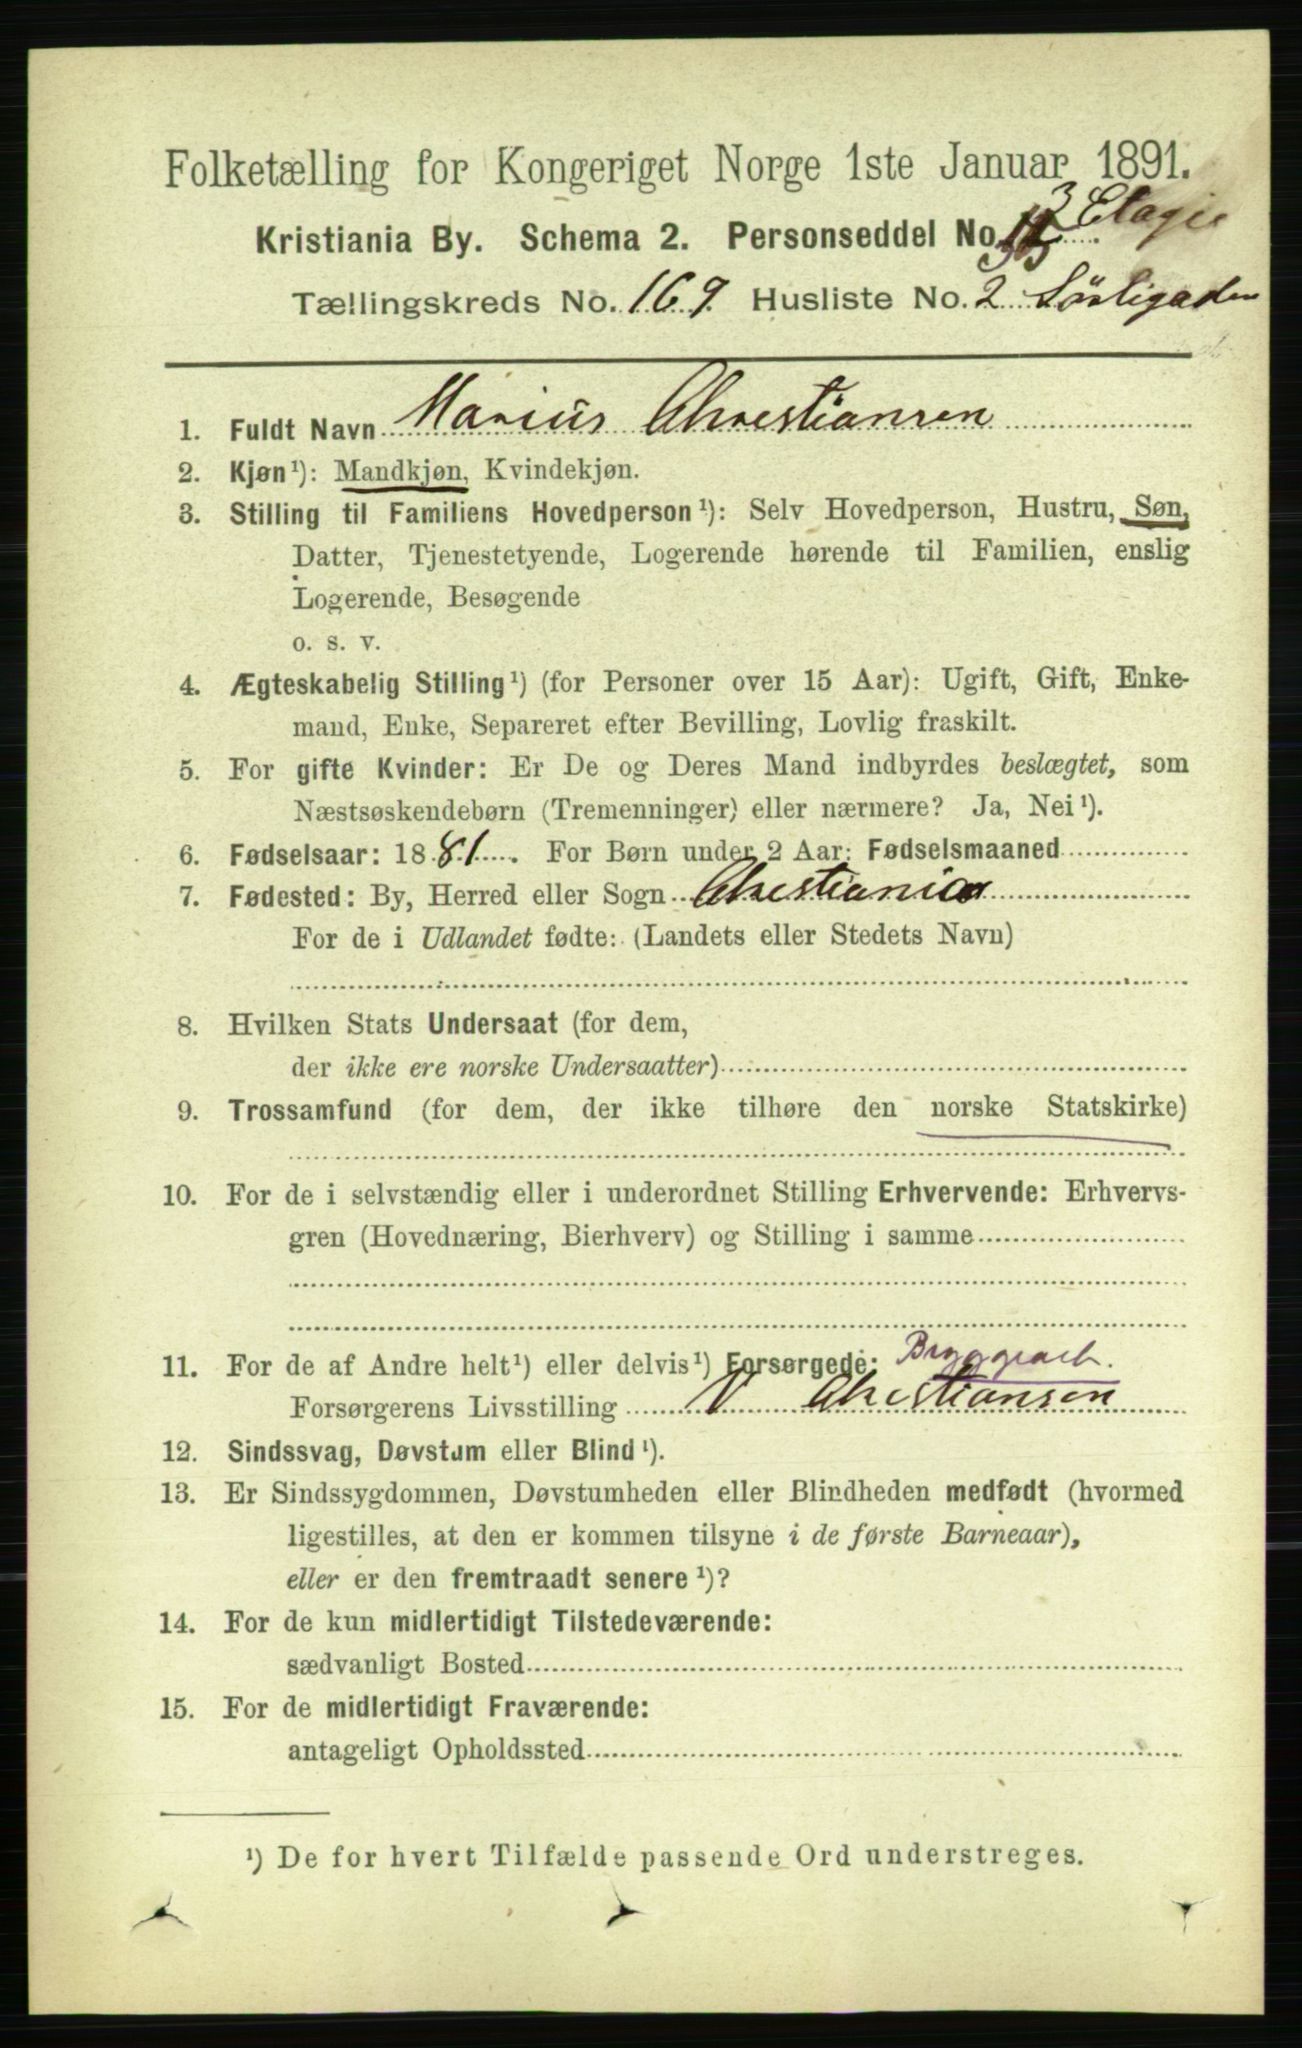 Folketælling for Kongeriget Norge 1ste Januar 1891.
3 Etagie
Kristiania By. Schema 2. Personseddel No.
Tællingskreds No. 169 Husliste No. 2 Sörligaden
1. Fuldt Navn Marius Chrestiansen
2. Kjøn ¹): Mandkjøn, Kvindekjøn.
3. Stilling til Familiens Hovedperson ¹): Selv Hovedperson, Hustru, Søn,
Datter, Tjenestetyende, Logerende hørende til Familien, enslig
Logerende, Besøgende
o. s. v.
4. Ægteskabelig Stilling ¹) (for Personer over 15 Aar): Ugift, Gift, Enke-
mand, Enke, Separeret efter Bevilling, Lovlig fraskilt.
5. For gifte Kvinder: Er De og Deres Mand indbyrdes beslægtet, som
Næstsøskendebørn (Tremenninger) eller nærmere? Ja, Nei ¹).
6. Fødselsaar: 1881. For Børn under 2 Aar: Fødselsmaaned
7. Fødested: By, Herred eller Sogn Chrestiania
For de i Udlandet fødte: (Landets eller Stedets Navn)
8. Hvilken Stats Undersaat (for dem,
der ikke ere norske Undersaatter)
9. Trossamfund (for dem, der ikke tilhøre den norske Statskirke)
10. For de i selvstændig eller i underordnet Stilling Erhvervende: Erhvervs-
gren (Hovednæring, Bierhverv) og Stilling i samme
11. For de af Andre helt ¹) eller delvis ¹) Forsørgede: Bryggearb.
Forsørgerens Livsstilling V Chrestiansen
12. Sindssvag, Døvstum eller Blind ¹).
13. Er Sindssygdommen, Døvstumheden eller Blindheden medfødt (hvormed
ligestilles, at den er kommen tilsyne i de første Barneaar),
eller er den fremtraadt senere ¹)?
14. For de kun midlertidigt Tilstedeværende:
sædvanligt Bosted
15. For de midlertidigt Fraværende:
antageligt Opholdssted
¹) De for hvert Tilfælde passende Ord understreges.